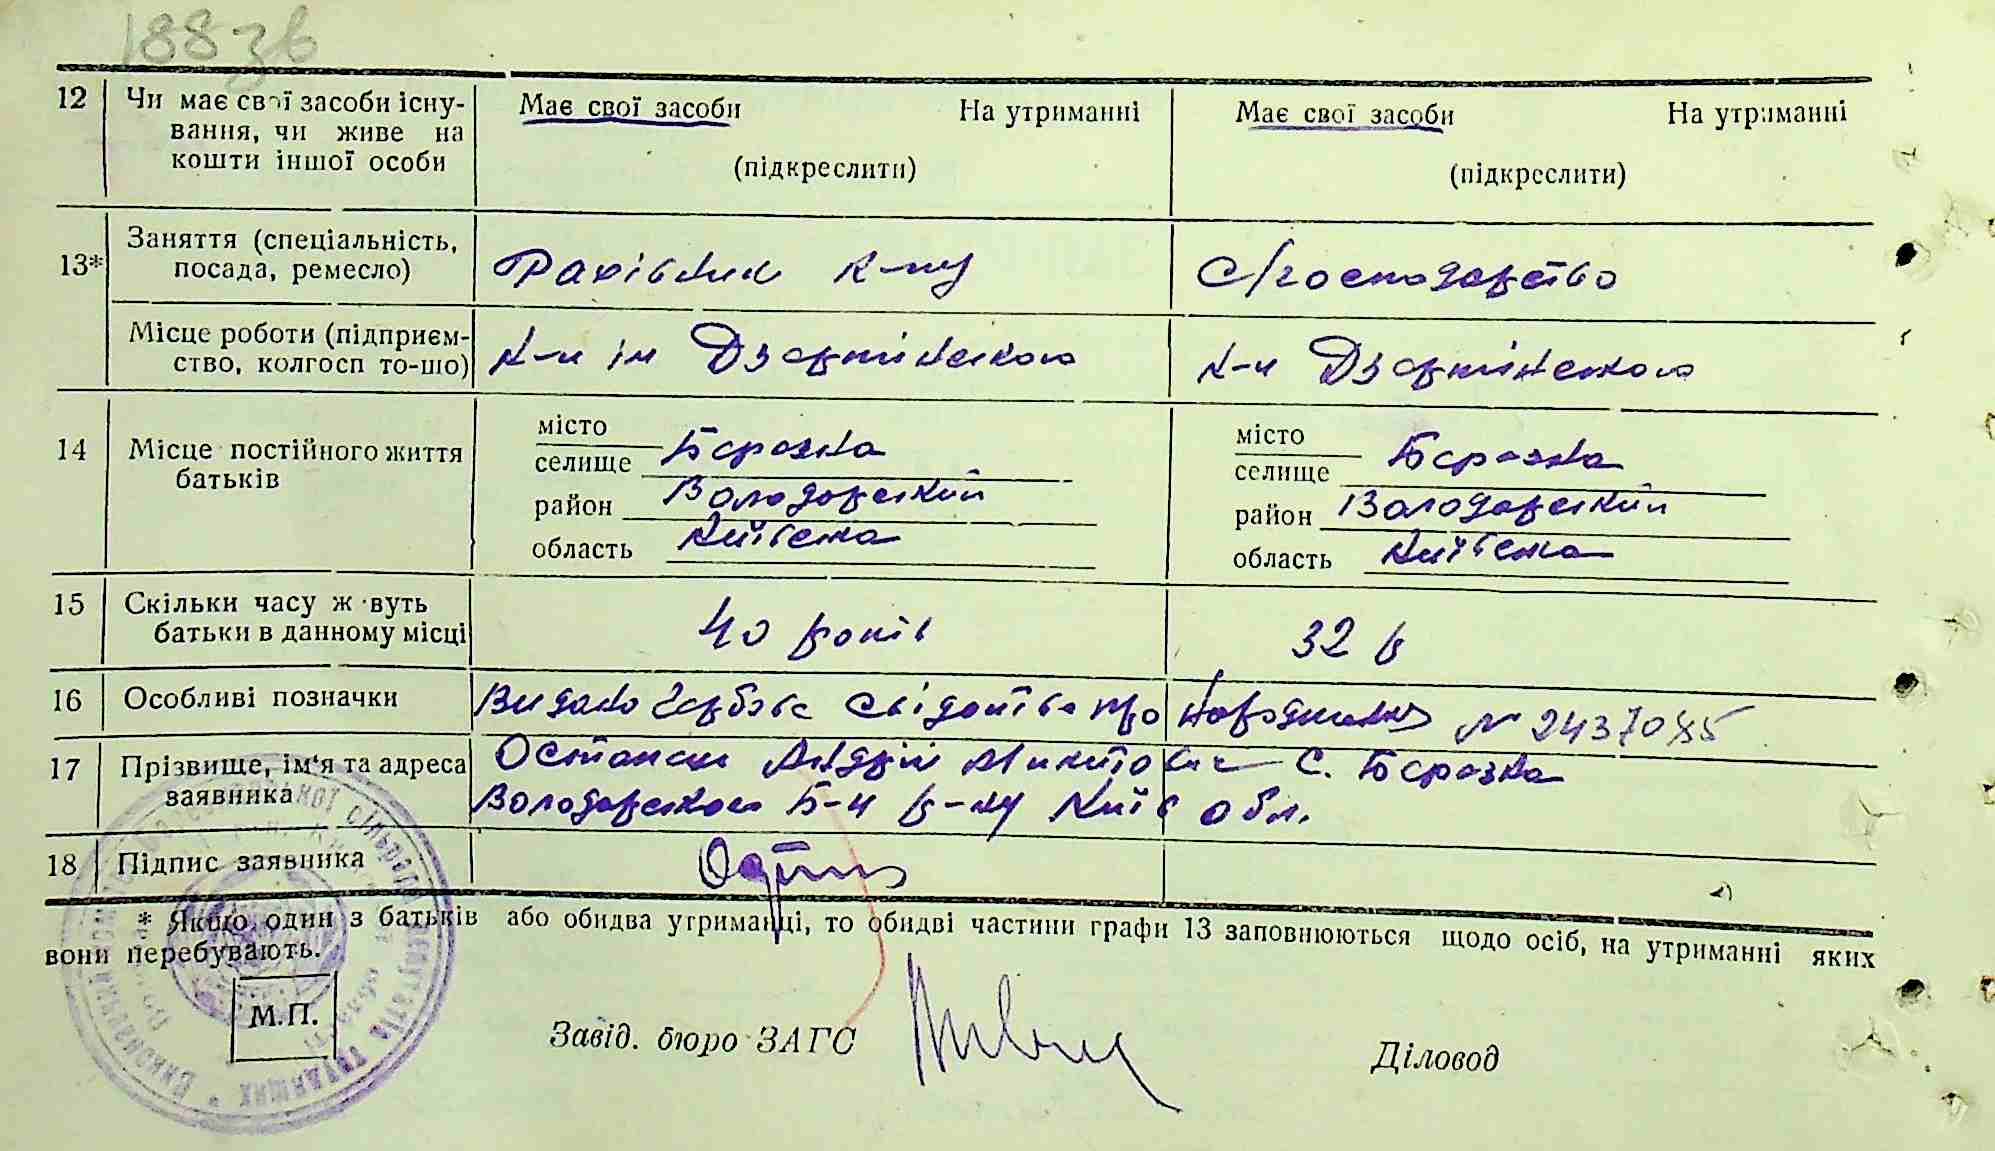 188зв
12 Чи має свої засоби існу- Має свої засоби На утриманні Має свої засоби На утриманні
вання, чи живе на
кошти іншої особи (підкреслити) (підкреслити)
13* Заняття (спеціальність,
посада, ремесло) Рахівник к-пу с/господарство
Місце роботи (підприєм- к-п ім Дзержинського к-п Дзержинського
ство, колгосп то-що)
14 Місце постійного життя
батьків
місто місто
селище Березна селище Березна
район Володарський район Володарський
область Київська область Київська
15 Скільки часу ж вуть 40 років 32 р
батьки в данному місці
16 Особливі позначки Видано гербове свідотство про народження №
17 Прізвище, ім'я та адреса Андрій Микитович С. Березна
заявника Володарського р-ну Київ обл.
18 Підпис заявника
* Якщо один з батьків або обидва утриманці, то обидві частини графи 13 заповнюються щодо осіб, на утриманні яких
вони перебувають.
М.П.
Завід. бюро ЗАГС Діловод